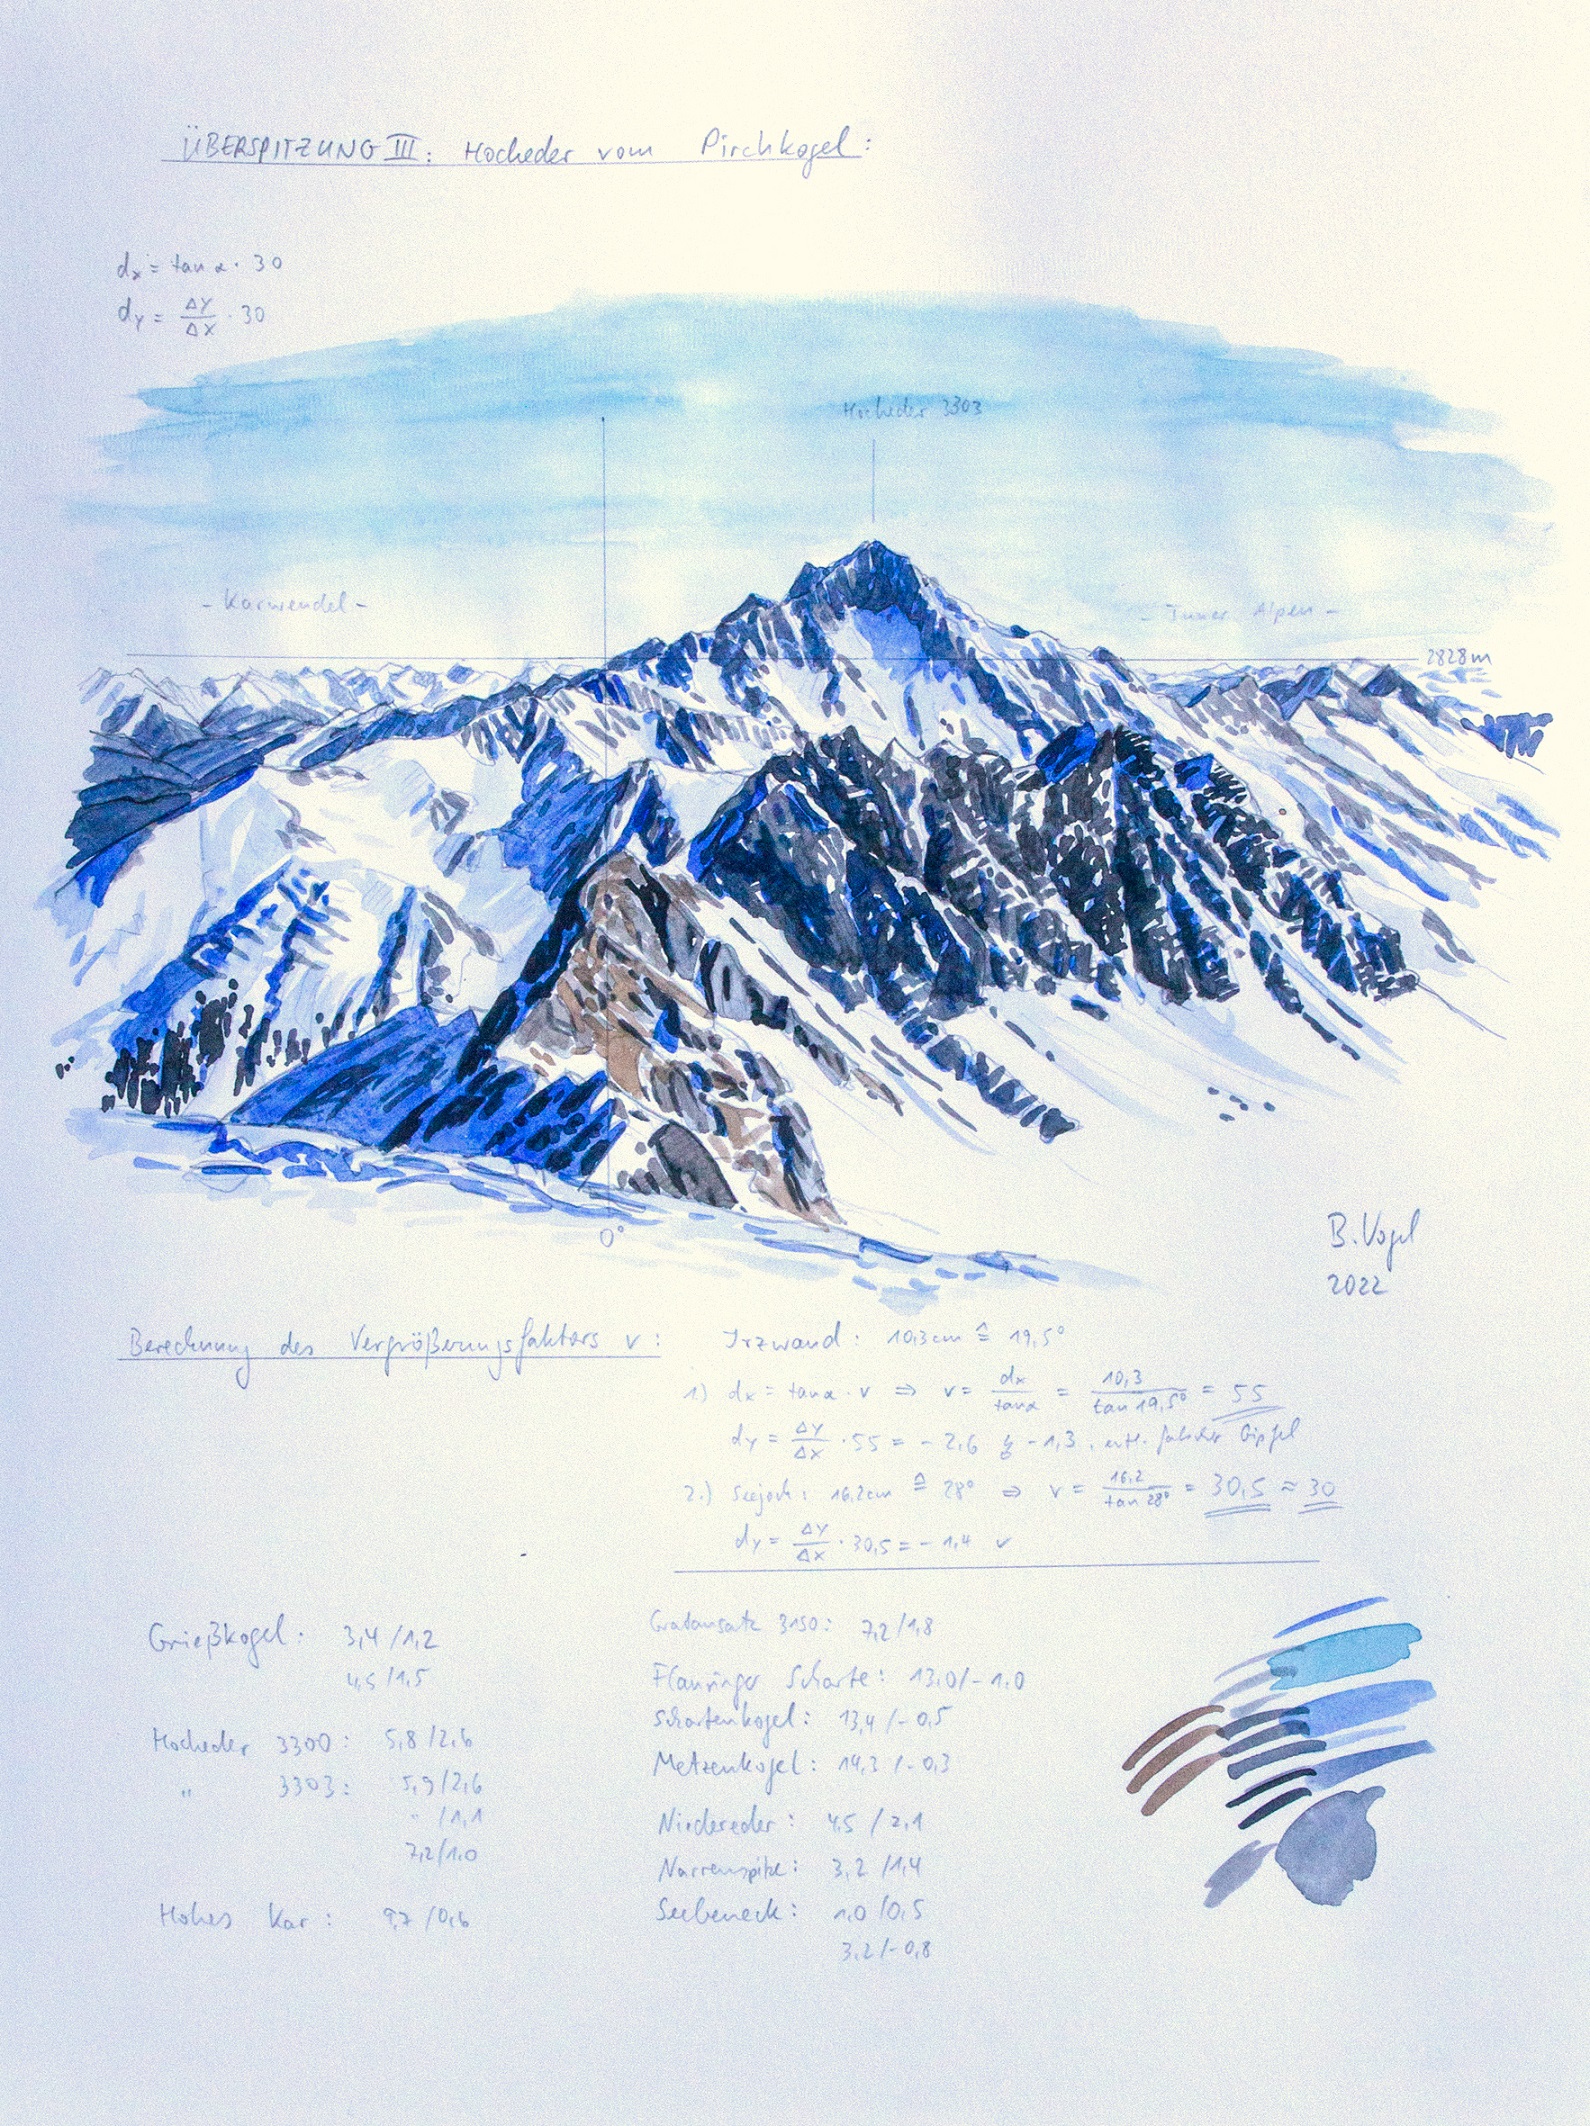 ÜBERSPITZUNG III: Hocheder vom Pirchkogel:
dx = tan α · 30
dy = ΔY/ΔX · 30
Hocheder 3303
- Karwendel -
- Inner Alpen -
2828m
0°
B. Vogel
2022
Berechnung des Vergrößerungsfaktors v:
Irzwand: 10,3cm ≙ 19,5°
1.) dx = tanα · v ⇒ v = dx/tanα = 10,3/tan 19,5° = 55
dy = ΔY/ΔX · 55 = - 2,6 ↯ -1,3, falscher Gipfel
2.) Seejoch: 16,2cm ≙ 28° ⇒ v = 16,2/tan 28° = 30,5 ≈ 30
dy = ΔY/ΔX · 30,5 = - 1,4 ✓
Grießkogel: 3,4 /1,2
4,5 /1,5
Hocheder 3300: 5,8 /2,6
" 3303: 5,9 /2,6
" /1,1
7,2 /1,0
Hohes Kar: 9,7 /0,6
Gratansatz 3150: 7,2 /1,8
Flauringer Scharte: 13,0/-1,0
Schartenkogel: 13,4 /-0,5
Metzenkogel: 14,3 /-0,3
Niedereder: 4,5 /2,1
Narrenspitze: 3,2 /1,4
Seebeneck: 1,0 /0,5
3,2/-0,8